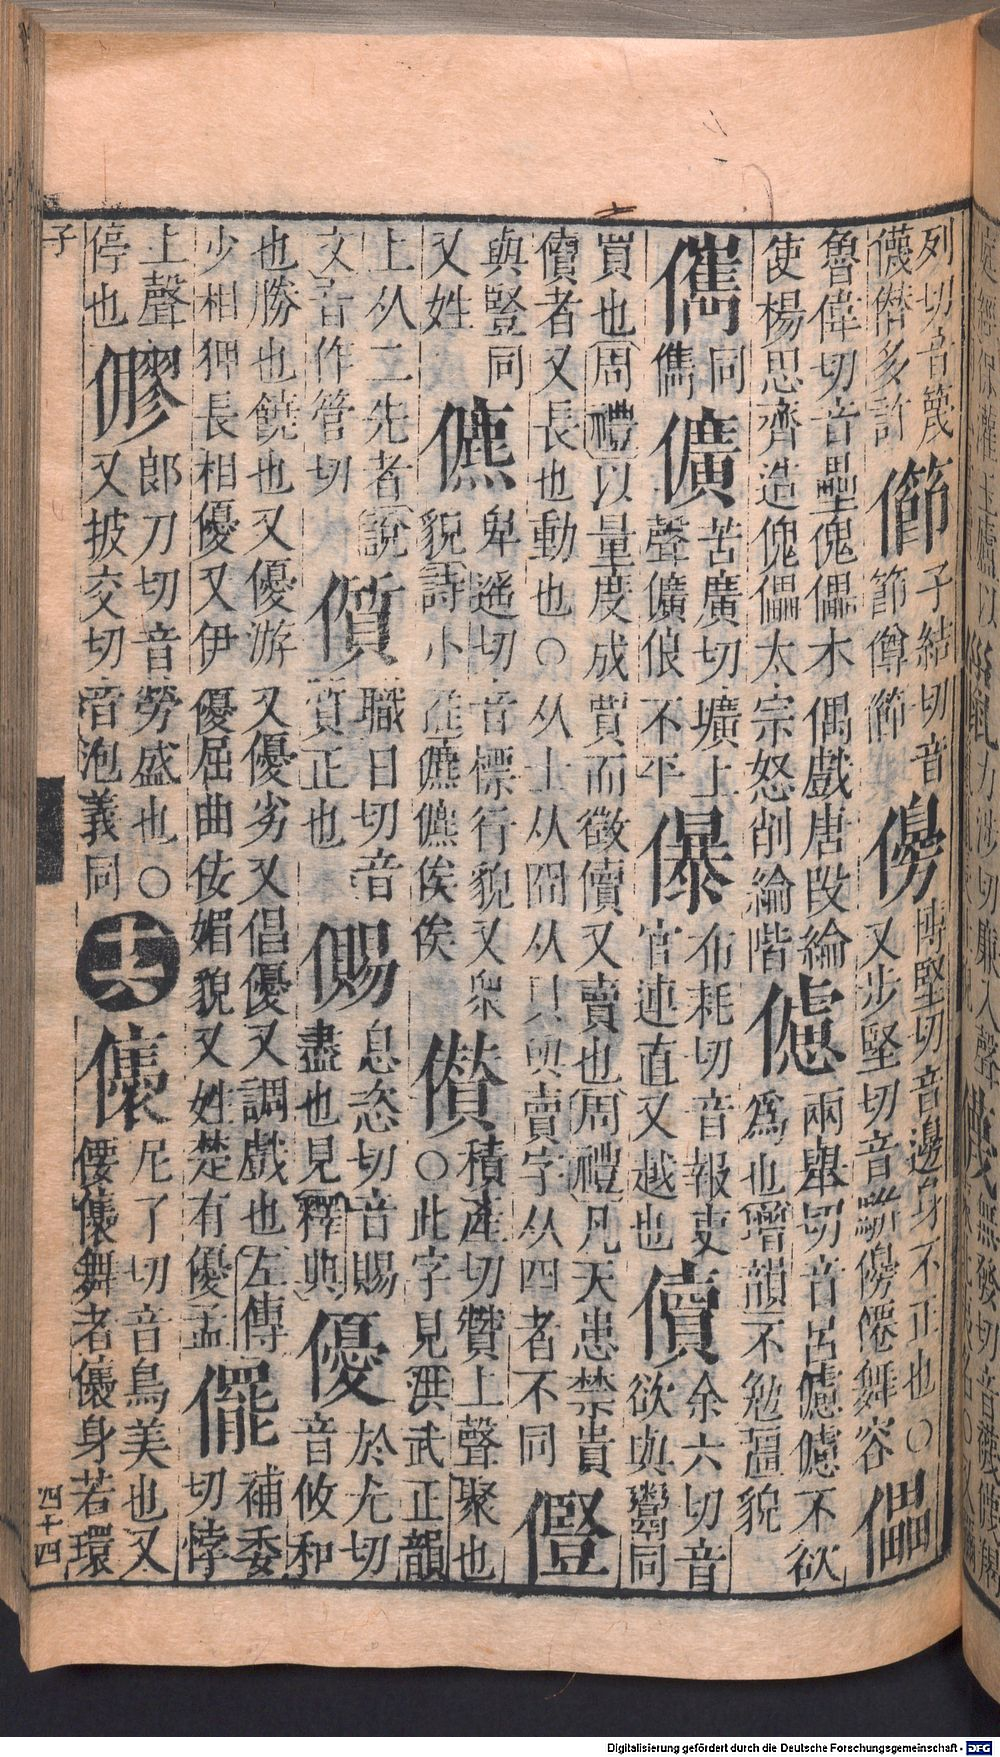 列切音篾
㒝僣多許
㘉
子結切音
節僔
博堅切音邊身不正也○
又步堅切音骿僊舞容
儡
魯偉切音壘傀儡木偶戲唐段綸
使楊思齊造傀儡太宗怒削綸階
儢
兩舉切音呂儢儢不欲
爲也增韻不勉彊貌
同
儁
儣
苦廣切壙上
聲儣俍不平
儤
布耗切音報吏
官連直又越也
儥
余六切音
欲與鬻同
買也周禮以量度成賈而徵儥又賣也周禮凡天患禁貴
儥者又長也動也○从士从囧从貝與賣字从四者不同
與豎同
又姓
儦
卑遙切音標行貌又衆
貌詩小雅儦儦俟俟
儧
積產切贊上聲聚也
○此字見洪武正韻
上从二先者說
文音作管切
儨
職日切音
質正也
儩
息恣切音賜
盡也見釋典
優
於尤切
音攸和
也勝也饒也又優游又優劣又倡優又調戲也左傳
少相狎長相優又伊優屈曲佞媚貌又姓楚有優孟
㒧
補委
切悖
上聲
停也
郎刀切音勞盛也○
又披交切音泡義同
十六
㒟
尼了切音鳥美也又
偠㒟舞者㒟身若環
子
四十四
Digitalisierung gefördert durch die Deutsche Forschungsgemeinschaft - DFG